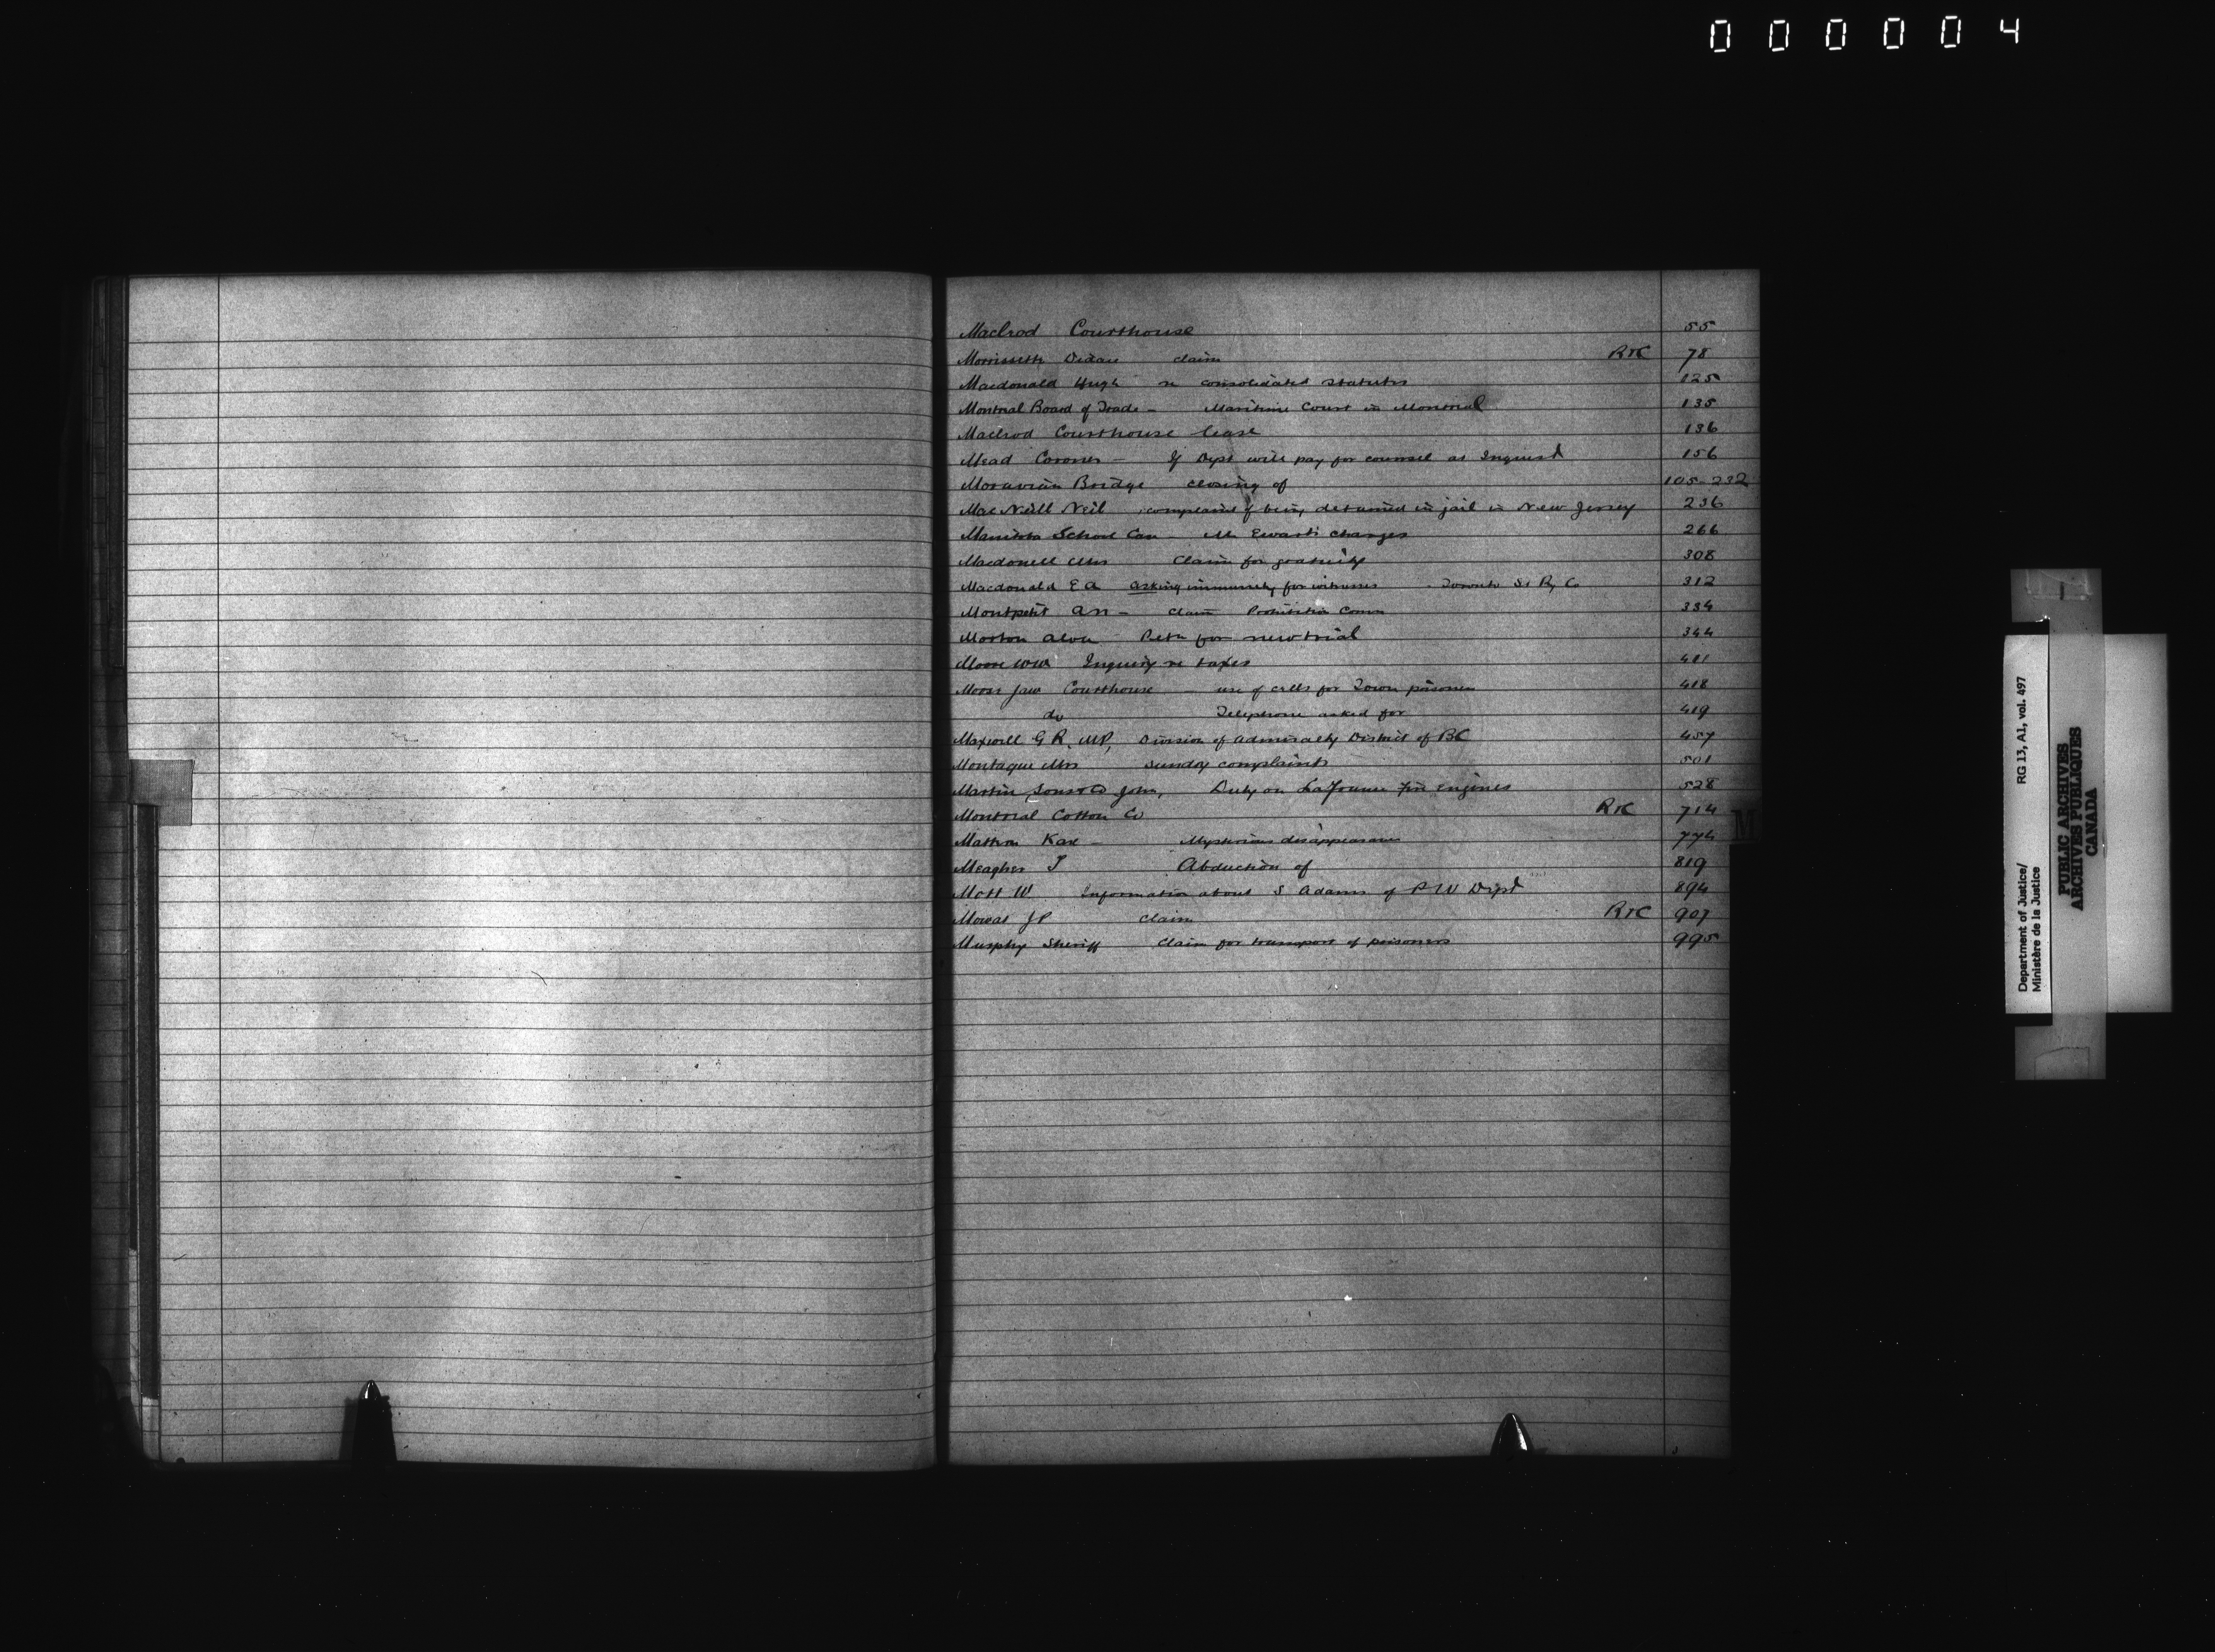 000004
Macleod Courthouse 55
Morrissette claim R&C 78
Macdonald Hugh re consolidated statutes 125
Montreal Board of Trade - Maritime Court in Montreal 135
Macleod Courthouse lease 136
Mead Coroner - If Dept will pay for counsel at Inquest 156
Moravian Bridge closing of 105-232
MacNeill Neil complains of being detained in jail in New Jersey 236
Manitoba School Case - Mr Ewarts charges 266
Macdonell Mrs Claim for gratuity 308
Macdonald E A asking immunity for witnesses - Toronto St Ry Co 312
Montpetit AN - claim Prohibition Comn 334
Morton Petn for new trial 344
Moore WW Inquiry re taxes 401
Moose Jaw Courthouse - use of cells for Town prisoners 418
do Telephone asked for 419
Maxwell G R, MP, Division of Admiralty District of BC 457
Montague Mrs Sunday complaints 501
Martin Sons & Co John, Duty on LaFrance fire engines 528
Montreal Cotton Co R&C 714
Mattson Karl - Mysterious disappearance 774
Meagher T Abduction of 819
Mott W Information about S Adams of P W Dept 894
Mowat JP Claim R&C 907
Murphy Sheriff Claim for transport of prisoners 995
M
Department of Justice/ RG 13, A1, vol. 497
Ministère de la Justice
PUBLIC ARCHIVES
ARCHIVES PUBLIQUES
CANADA